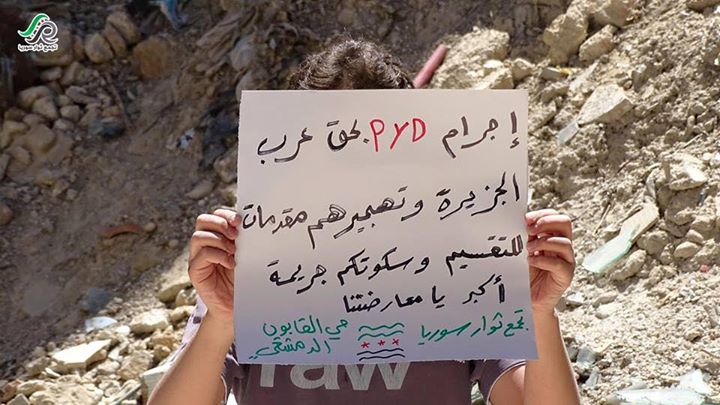 تجمع ثوار سوريا
إجرام PYD بحق عرب
الجزيرة وتهجيرهم مقدمات
للتقسيم وسكوتكم جريمة
أكبر يا معارضتنا
تجمع ثوار سوريا
حي القابون
الدمشقي
raw